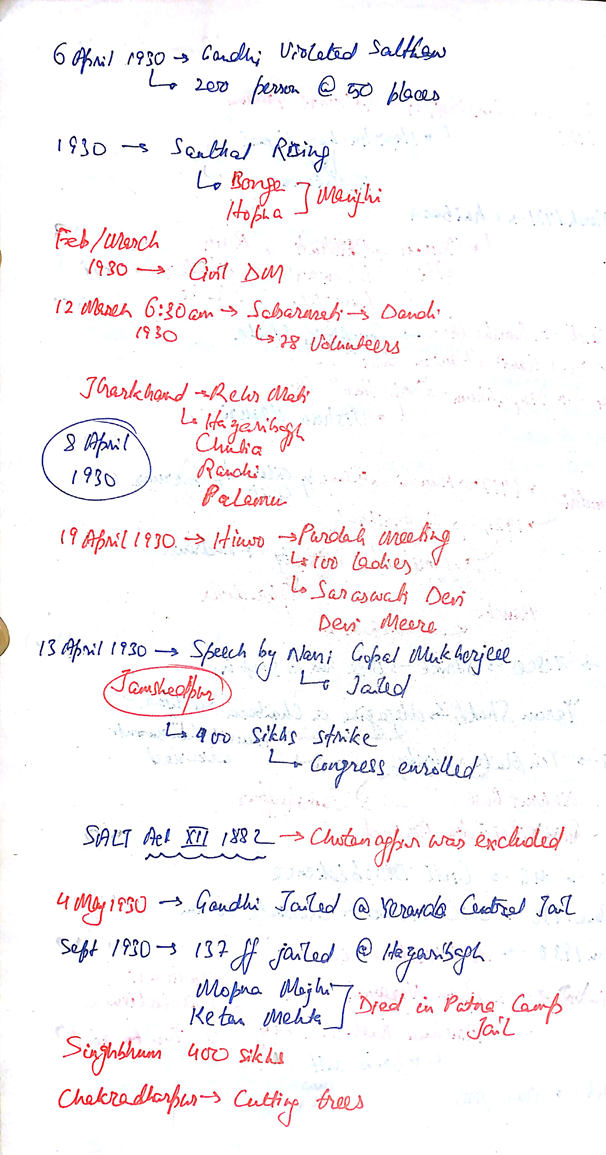 6 April 1930 → Gandhi Violated Saltlaw
↳ 200 person @ 50 places
1930 → Santhal Rising
↳ Bonga
Hopna ] Manjhi
Feb/March
1930 → Civil DM
12 March 6:30am → Sabarmati → Dandi
1930 ↳ 78 Volunteers
Jharkhand → Mati
↳ Hazaribagh
8 April
1930
Chutia
Ranchi
Palamu
19 April 1930 → → Pardah meeting
↳ 100 Ladies
↳ Saraswati Devi
Devi Meera
13 April 1930 → Speech by Nani Gopal Mukherjee
Jamshedpur
↳ Jailed
↳ 400 sikhs strike
↳ Congress enrolled
SALT Act XII 1882 → Chotanagpur was excluded
4 May 1930 → Gandhi Jailed @ Yeravda Central Jail
Sept 1930 → 137 ff jailed @ Hazaribagh
Mopna Majhi
Ketan Mehta ] Died in Patna Camp
Jail
Singhbhum 400 sikhs
Chakradharpur → Cutting trees